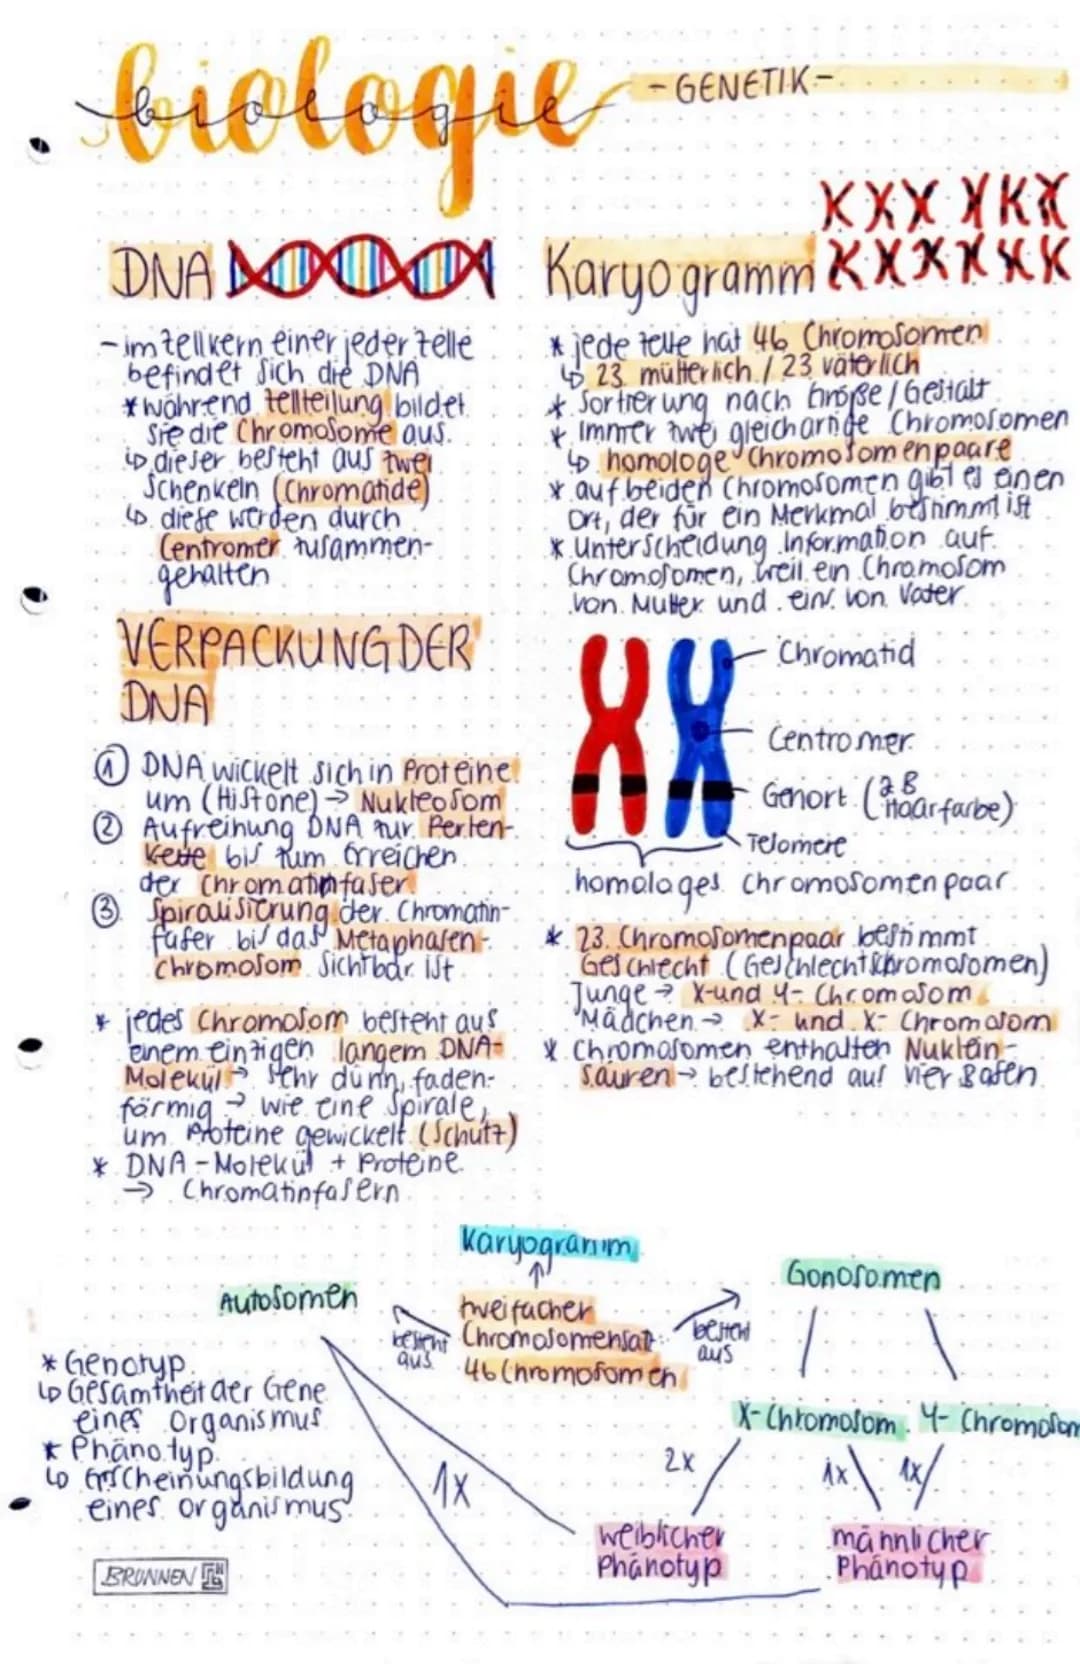 biologie
biologie
- GENETIK -
DNA
- im Zellkern einer jeder Zelle
befindet sich die DNA
* während Zellteilung bildet
sie die Chromosome aus.
↳ dieser besteht aus zwei
Schenkeln (Chromatide)
↳ diese werden durch
Centromer zusammen-
gehalten
VERPACKUNG DER
DNA
① DNA wickelt sich in Proteine
um (Histone) → Nukleosom
② Aufreihung DNA zur Perlen-
kette bis zum Erreichen
der Chromatinfaser
③ Spiralisierung der Chromatin-
fafer bis das Metaphasen-
chromosom sichtbar ist
* jedes Chromosom besteht aus
einem einzigen langem DNA-
Molekül → sehr dünn, faden-
förmig → wie eine Spirale,
um Proteine gewickelt (Schutz)
* DNA - Molekül + Proteine
→ Chromatinfasern
Karyogramm
* jede Zelle hat 46 Chromosomen
↳ 23 mütterlich / 23 väterlich
* Sortierung nach Größe / Gestalt
* Immer zwei gleichartige Chromosomen
↳ homologe Chromosomenpaare
* auf beiden Chromosomen gibt es einen
Ort, der für ein Merkmal bestimmt ist
* Unterscheidung Information auf
Chromosomen, weil ein Chromosom
von Mutter und eins von Vater
Chromatid
Centromer
Genort (z B
Haarfarbe)
Telomere
homologes Chromosomenpaar
* 23. Chromosomenpaar bestimmt
Geschlecht (Geschlechtschromosomen)
Junge → X-und Y- Chromosom
Mädchen → X- und X- Chromosom
* Chromosomen enthalten Nuklein-
säuren → bestehend aus vier Basen
Karyogramm
Autosomen
besteht
aus
zweifacher
Chromosomensatz
46 Chromosomen
besteht
aus
Gonosomen
* Genotyp
↳ Gesamtheit der Gene
eines Organismus
* Phänotyp
↳ Erscheinungsbildung
eines Organismus
X- Chromosom
Y- Chromosom
1x
2x
1x
1x
weiblicher
Phänotyp
männlicher
Phänotyp
BRUNNEN